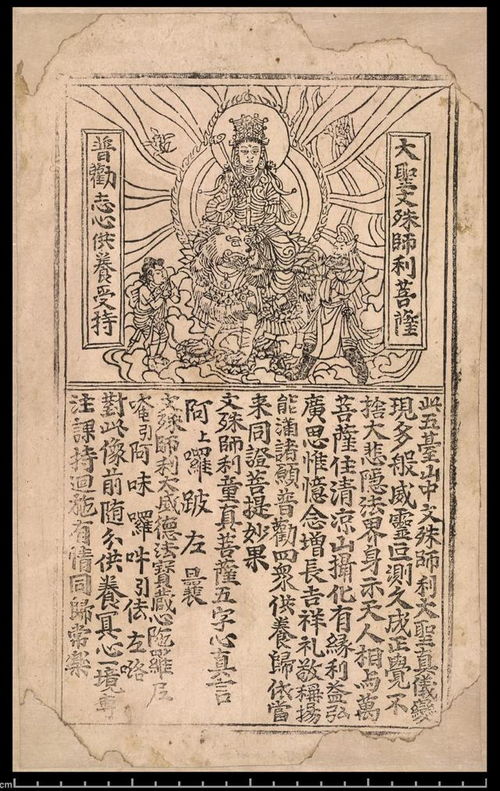 大聖文殊師利菩薩
普勸志心供養受持
此五臺山中文殊師利大聖真儀變
現多般威靈叵測久成正覺不
捨大悲隱法界身示天人相与萬
菩薩住清凉山攝化有緣利益弘
廣思惟憶念增長吉祥礼敬稱揚
能滿諸願普勸四衆供養歸依當
來同證菩提妙果
文殊師利童真菩薩五字心真言
阿上囉跛左曩
文殊師利大威德法寶藏心陁羅尼
唵引阿味囉吽引佉左咯
對此像前随分供養冥心一境專
注課持迴施有情同歸常樂
cm